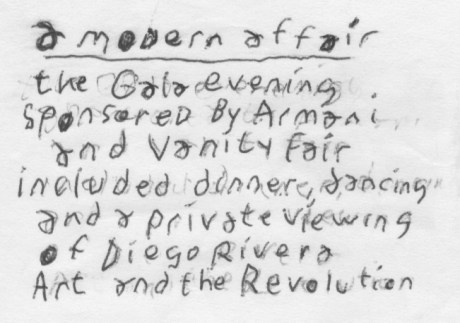 a modern affair
the Gala evening
sponsored By Armani
and Vanity fair
included dinnere, dancing
and a private viewing
of Diego Rivera
Art and the Revolution